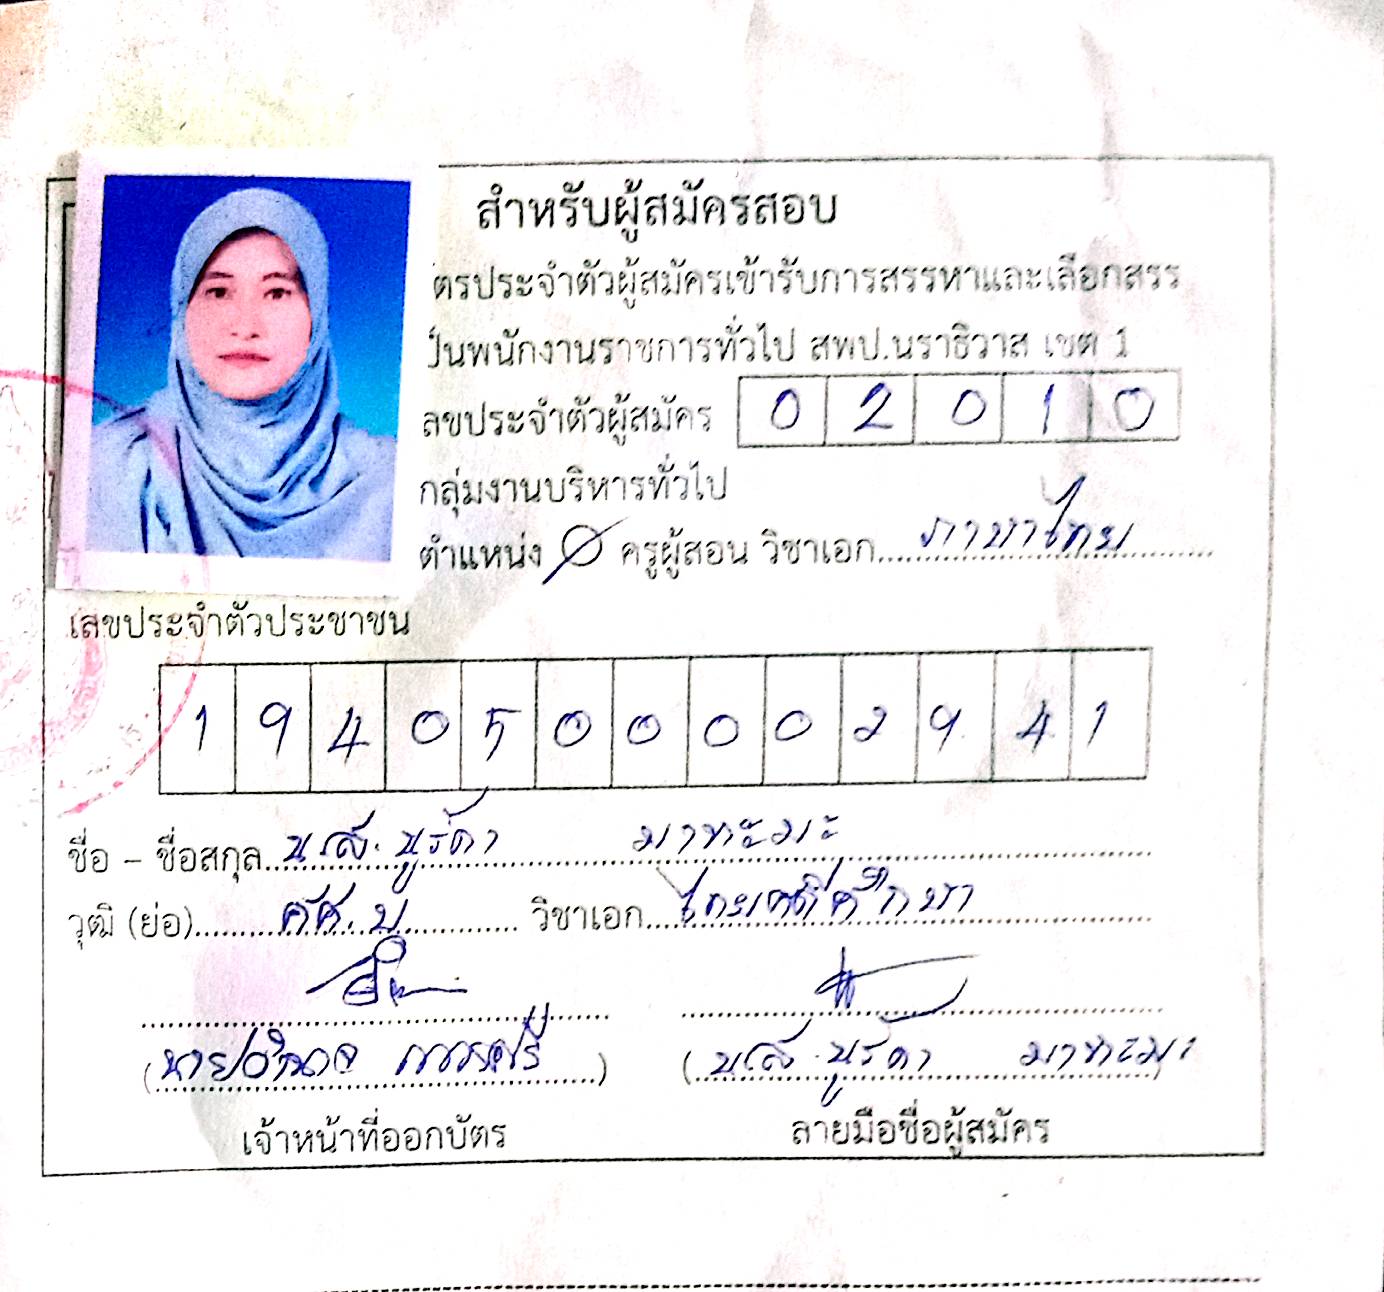 สำหรับผู้สมัครสอบ
ตรประจำตัวผู้สมัครเข้ารับการสรรหาและเลือกสรร
ป็นพนักงานราชการทั่วไป สพป.นราธิวาส เขต 1
ลขประจำตัวผู้สมัคร 0 2 0 1 0
กลุ่มงานบริหารทั่วไป
ตำแหน่ง ครูผู้สอน วิชาเอก ภาษาไทย
เลขประจำตัวประชาชน
1 9 4 0 5 0 0 0 0 2 9 4 1
ชื่อ - ชื่อสกุล นส. นูร์ดา มาหะมะ
วุฒิ (ย่อ) ศศ.บ. วิชาเอก ไทยคดีศึกษา
(นาย) (นส. นูร์ดา มาหะมะ)
เจ้าหน้าที่ออกบัตร ลายมือชื่อผู้สมัคร